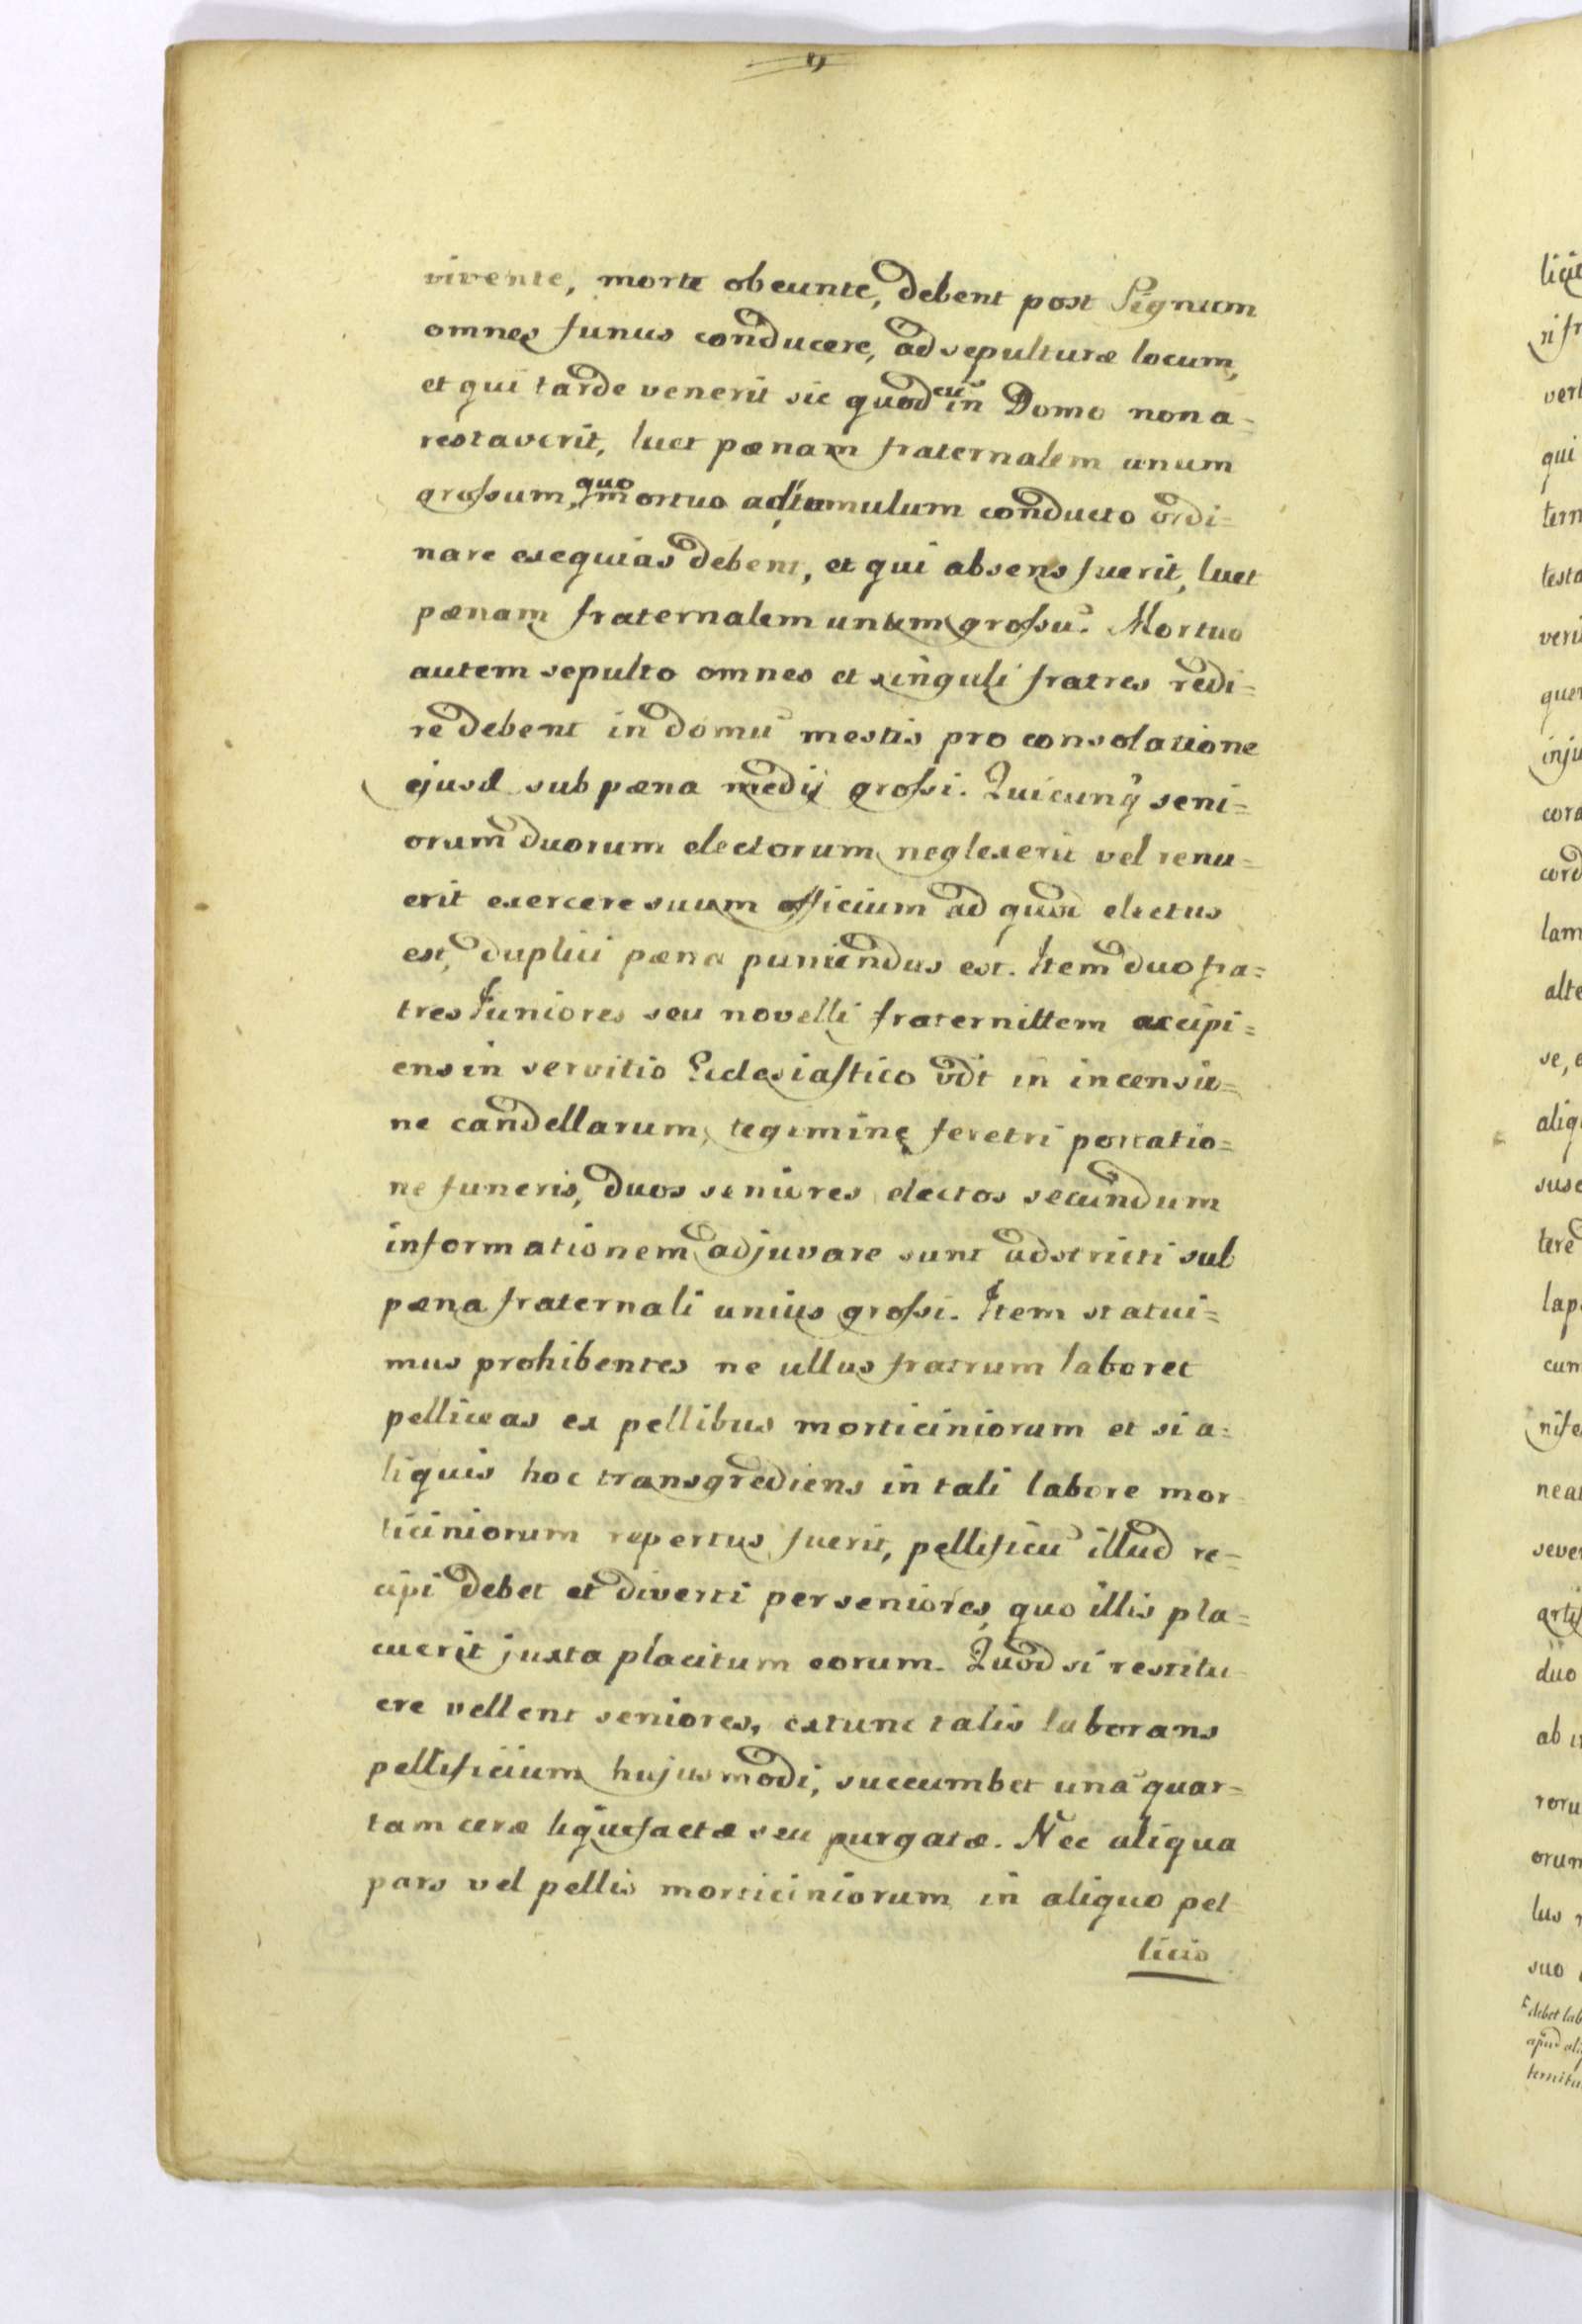 vivente, morte obeunte, debent post Signum
omnes funus conducere, ad sepulturæ locum,
et qui tarde venerit sic quod eu̅ in Domo non a=
restaverit, luet pœnam fraternalem unum
grossum, quo mortuo ad tumulum conducto ordi=
nare exequias debent, et qui absens fuerit, luet
pœnam fraternalem unum grossu̅. Mortuo
autem sepulto omnes et singuli fratres redi=
re debent in domu̅ mestis pro consolatione
ejusd sub pœna medij grossi. Quicunq̃ seni=
orum duorum electorum neglexerit vel renu=
erit exercere suum officium ad quod electus
est, duplici pœna puniendus est. Item duo fra=
tres Juniores seu novelli fraternittem accipi=
ens in servitio Ecclesiastico vdt in incensio=
ne candellarum, tegimine feretri portatio=
ne funeris, duos seniores electos secundum
informationem adjuvare sunt adstricti sub
pœna fraternali unius grossi. Item statui=
mus prohibentes ne ullus fratrum laboret
pelliceas ex pellibus morticiniorum et si a=
liquis hoc transgrediens in tali labore mor
ticiniorum repertus fuerit, pellificiu̅ illud re=
cipi debet et diverti per seniores, quo illis pla=
cuerit juxta placitum eorum. Quod si restitu
ere vellent seniores, extunc talis laborans
pellificium hujusmodi, succumbet una quar=
tam ceræ liquefactæ seu purgatæ. Nec aliqua
pars vel pellis morticiniorum in aliquo pel
licio